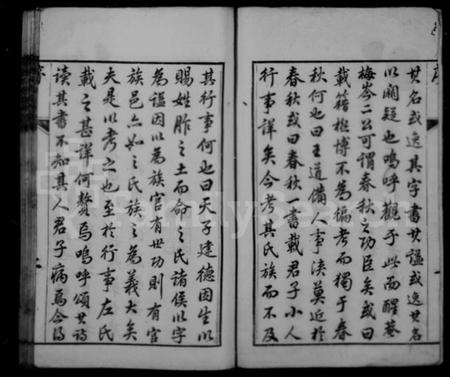 序
其名或逸其字書其諡或逸其名
以闕疑也嗚呼觀于此而醒菴
梅岑二公可謂春秋之功臣矣或曰
載籍極博不為徧考而獨于春
秋何也曰王道備人事浹莫近於
春秋或曰春秋書載君子小人
行事詳矣今考其氏族而不及
其行事何也曰天子建德因生以
賜姓胙之土而命之氏諸侯以字
為諡因以為族官有世功則有官
族邑亦如之氏族之為義大矣
夫是以考之也至於行事左氏
載之甚詳何贅焉嗚呼頌其詩
讀其書不知其人君子病焉合
序
FamilySearch